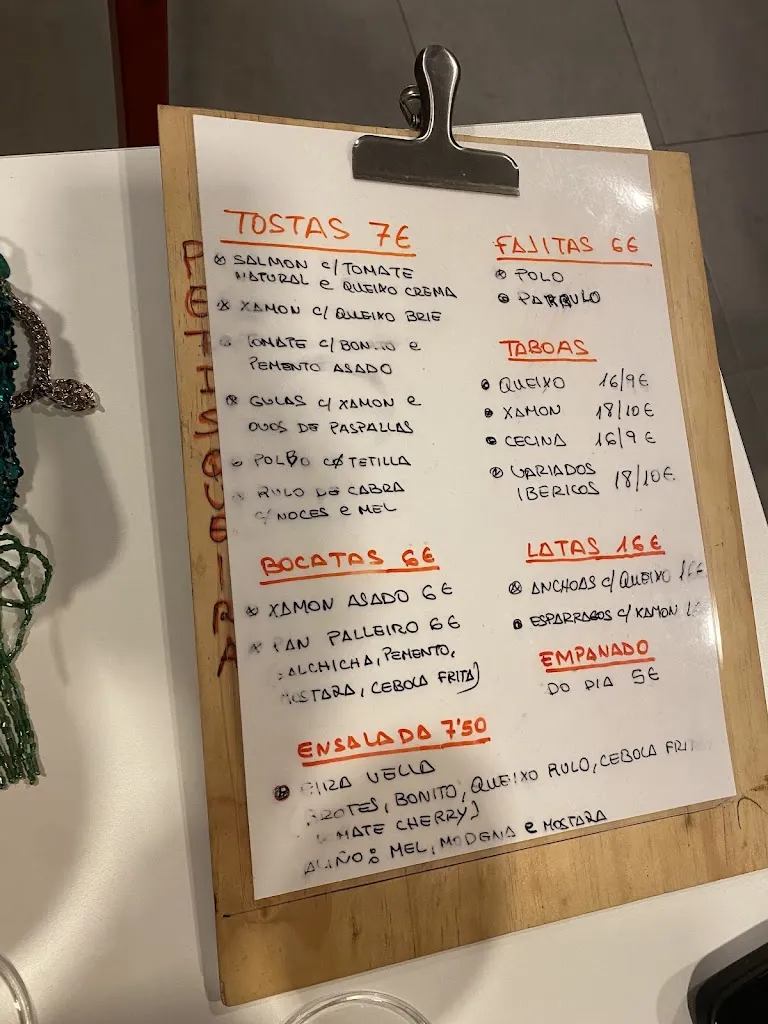 PETISQUEIRA
TOSTAS 7€
SALMON C/TOMATE
NATURAL E QUEIXO CREMA
XAMON C/ QUEIXO BRIE
TOMATE C/ BONITO E
PEMENTO ASADO
GULAS C/ XAMON E
OVOS DE PASPALLAS
POLBO C/ TETILLA
RULO DE CABRA
C/NOCES E MEL
BOCATAS 6€
XAMON ASADO 6€
PAN PALLEIRO 6€
SALCHICHA, PEMENTO,
MOSTARA, CEBOLA FRITA)
ENSALADA 7'50
EIRA VELLA
BROTES, BONITO, QUEIXO RULO, CEBOLA FRITA
TOMATE CHERRY)
ALIÑO: MEL, MODENA E MOSTARA
FAJITAS 6€
POLO
PARRULO
TABOAS
QUEIXO 16/9€
XAMON 18/10€
CECINA 16/9€
VARIADOS
IBERICOS 18/10€
LATAS 16€
ANCHOAS C/ QUEIXO 16€
ESPARRAGOS C/ XAMON
EMPANADO
DO DIA 5€